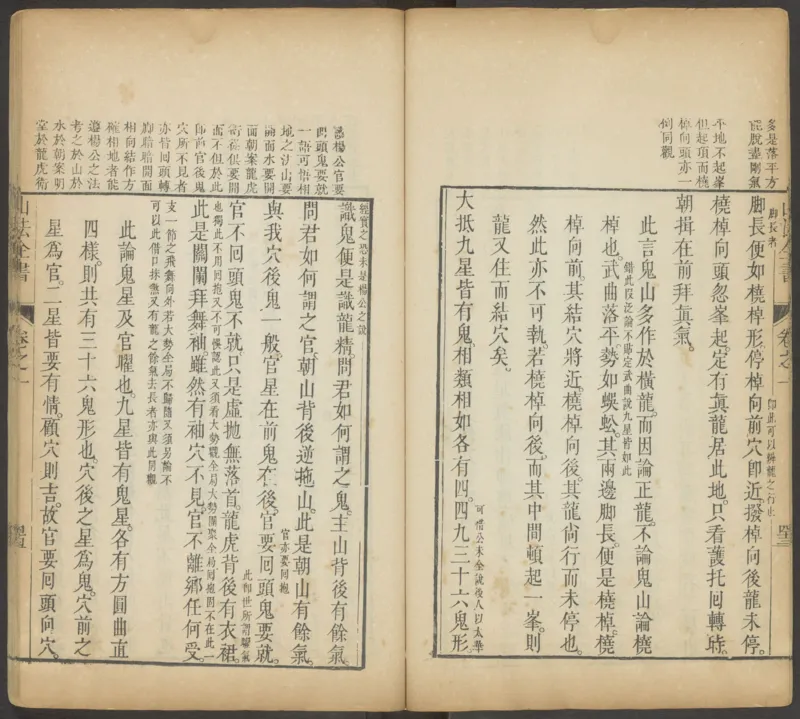 多是落平方
能脫盡剛氣
平地不起峯
但起項而橈
棹向頭亦一
例同觀
腳長者
腳長便如橈棹形停棹向前穴即近撥棹向後龍未停
即此可以辨龍之行止
橈棹向頭忽峯起定有真龍居此地只看護托回轉時
朝揖在前拜真氣
此言鬼山多作於橫龍而因論正龍不論鬼山論橈
錯此段泛論不貼定武曲說九星皆如此
棹也武曲落平勢如蜈蚣其兩邊腳長便是橈棹橈
棹向前其結穴將近橈棹向後其龍尚行而未停也
然此亦不可執若橈棹向後而其中間頓起一峯則
龍又住而結穴矣
大抵九星皆有鬼相類相如各有四四九三十六鬼形
可惜公未全說後人以太華
山法全書
卷之一
楊公官要
回頭鬼要就
一語可悟相
地之法山要
面朝案龍虎
面不但於此
即前官後鬼
穴所不見者
亦皆回頭轉
腳睛睛開面
相向結作方
確相地者能
遵楊公之法
考之於山於
水於朝案明
堂於龍虎衛
經實之恐未是楊公之說
識鬼便是識龍精問君如何謂之鬼主山背後有餘氣
問君如何謂之官朝山背後逆拖山此是朝山有餘氣
官亦要回抱
與我穴後鬼一般官星在前鬼在後官要回頭鬼要就
官不回頭鬼不就只是虛拋無落首龍虎背後有衣裙
此即世所謂曜氣
此是關闌拜舞袖雖然有袖穴不見官不離鄉任何受
支一節之飛舞向外若大勢全局不歸隨又須另論不
可以此借口抹煞又有龍之餘氣去長者亦與此同觀
此論鬼星及官曜也九星皆有鬼星各有方圓曲直
四樣則共有三十六鬼形也穴後之星為鬼穴前之
星為官二星皆要有情顧穴則吉故官要回頭向穴
山法全書
卷之一